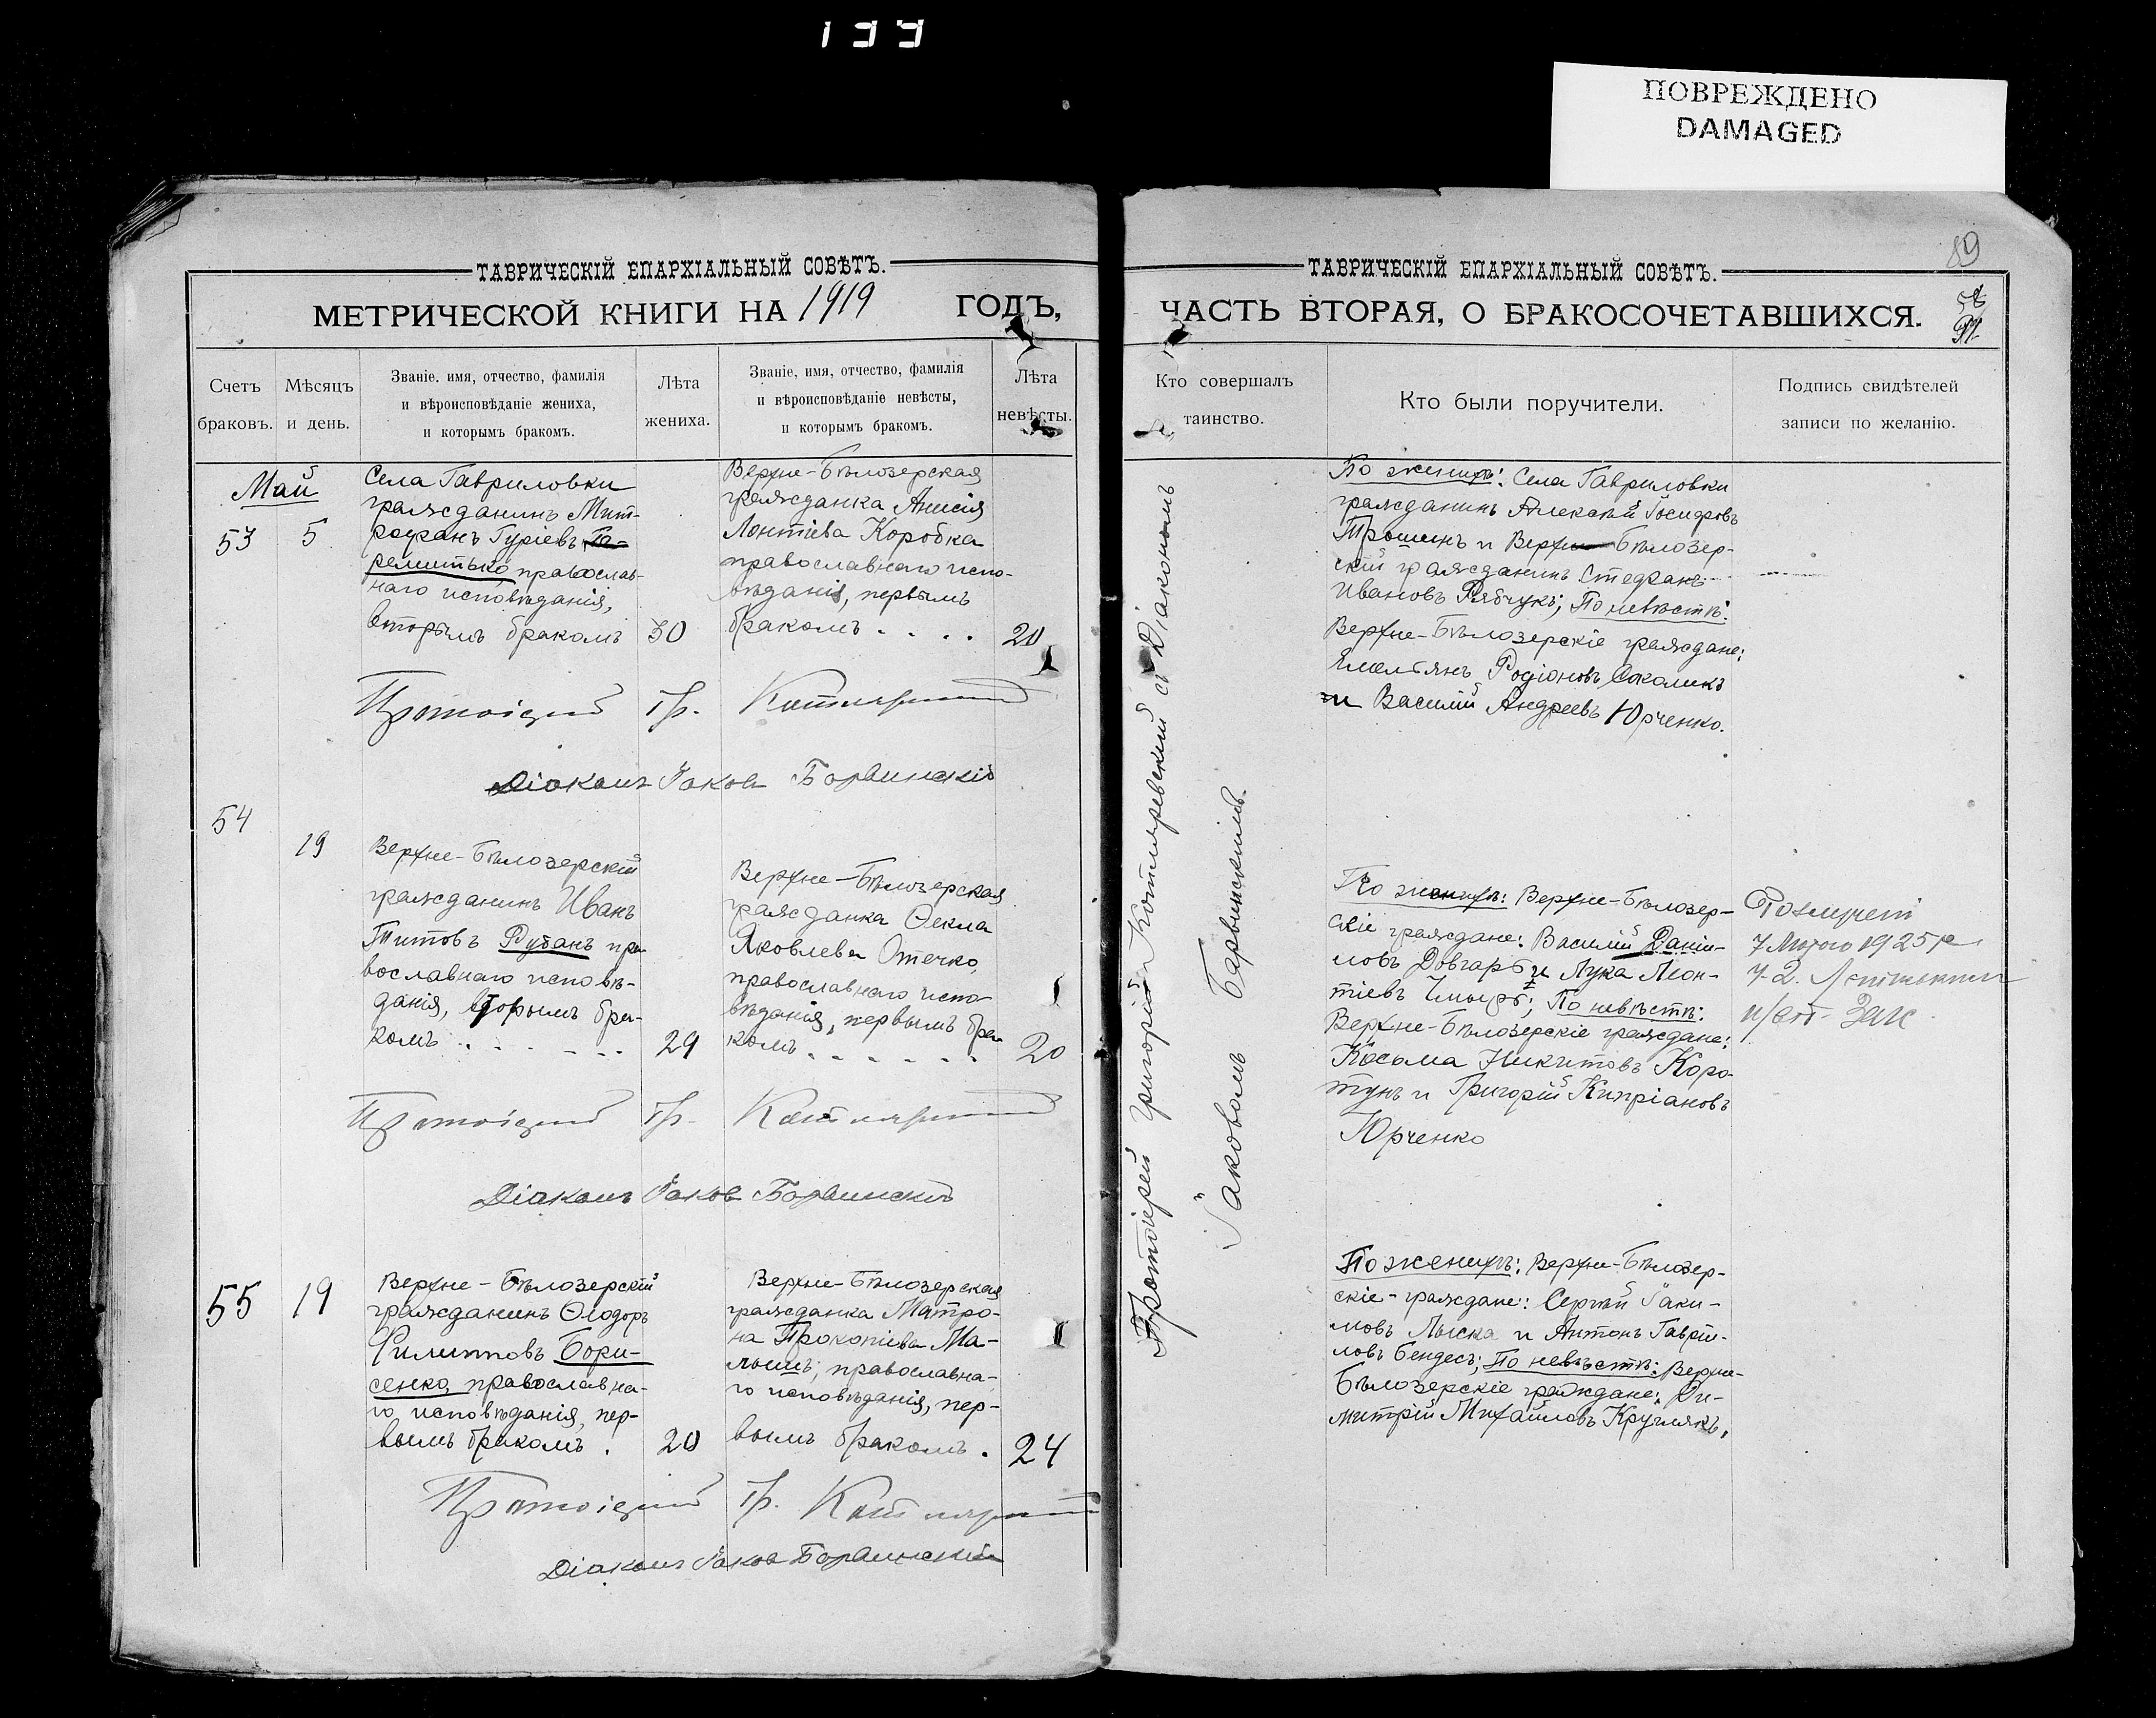 199
ПОВРЕЖДЕНО
DAMAGED
ТАВРИЧЕСКІЙ ЕПАРХІАЛЬНЫЙ СОВѢТЪ.
МЕТРИЧЕСКОЙ КНИГИ НА 1919 ГОДЪ,
Счетъ браковъ.
Мѣсяцъ и день.
Званіе, имя, отчество, фамилія
и вѣроисповѣданіе жениха,
и которымъ бракомъ.
Лѣта жениха.
Званіе, имя, отчество, фамилія
и вѣроисповѣданіе невѣсты,
и которымъ бракомъ.
Лѣта невѣсты.
Май
53
5
Села Гавриловки
гражданинъ Мит-
рофанъ Гуріевъ
православ-
наго исповѣданія,
вторымъ бракомъ
30
Верхне-Бѣлозерская
гражданка Анисія
Лонтіева Коробка
православнаго испо-
вѣданія, первымъ
бракомъ . . . .
20
Протоіерей Гр. Котляревский
Діаконъ Іаковъ Барвинскій
54
19
Верхне-Бѣлозерскій
гражданинъ Иванъ
Титовъ Рубанъ пра-
вославнаго исповѣ-
данія, вторымъ бра-
комъ . . . . . .
29
Верхне-Бѣлозерская
гражданка Ѳекла
Яковлева Отечко,
православнаго испо-
вѣданія, первымъ бра-
комъ . . . . . .
20
Протоіерей Гр. Котляревский
Діаконъ Іаковъ Барвинскій
55
19
Верхне-Бѣлозерскій
гражданинъ Ѳеодоръ
Филипповъ Бори-
сенко, православна-
го исповѣданія, пер-
вымъ бракомъ .
20
Верхне-Бѣлозерская
гражданка Матро-
на Прокопіева Ма-
лышъ, православна-
го исповѣданія, пер-
вымъ бракомъ .
24
Протоіерей Гр. Котляревский
Діаконъ Іаковъ Барвинскій
89
ТАВРИЧЕСКІЙ ЕПАРХІАЛЬНЫЙ СОВѢТЪ.
ЧАСТЬ ВТОРАЯ, О БРАКОСОЧЕТАВШИХСЯ.
Кто совершалъ
таинство.
Кто были поручители.
Подпись свидѣтелей
записи по желанію.
Протоіерей Григорій Котляревский съ Діакономъ
Іаковомъ Барвинскимъ.
По женихѣ: Села Гавриловки
гражданинъ Алексѣй
Трошинъ и Верхне-Бѣлозер-
скій гражданинъ Стефанъ
Ивановъ Рябчукъ; По невѣстѣ:
Верхне-Бѣлозерскіе граждане:
Емельянъ Родіоновъ Соколикъ
и Василій Андреевъ Юрченко.
По женихѣ: Верхне-Бѣлозер-
скіе граждане: Василій Даніи-
ловъ Довгаръ и Лука Леон-
тіевъ По невѣстѣ:
Верхне-Бѣлозерскіе граждане:
Косьма Никитовъ Коро-
тунъ и Григорій Кипріановъ
Юрченко
7 Лютого 1925 р
По женихѣ: Верхне-Бѣлозер-
скіе-граждане: Сергѣй Іаки-
мовъ Лыска и Антонъ Гаврии-
ловъ Бендесъ; По невѣстѣ: Верхне-
Бѣлозерскіе граждане: Ди-
митрій Михайловъ Круглякъ,